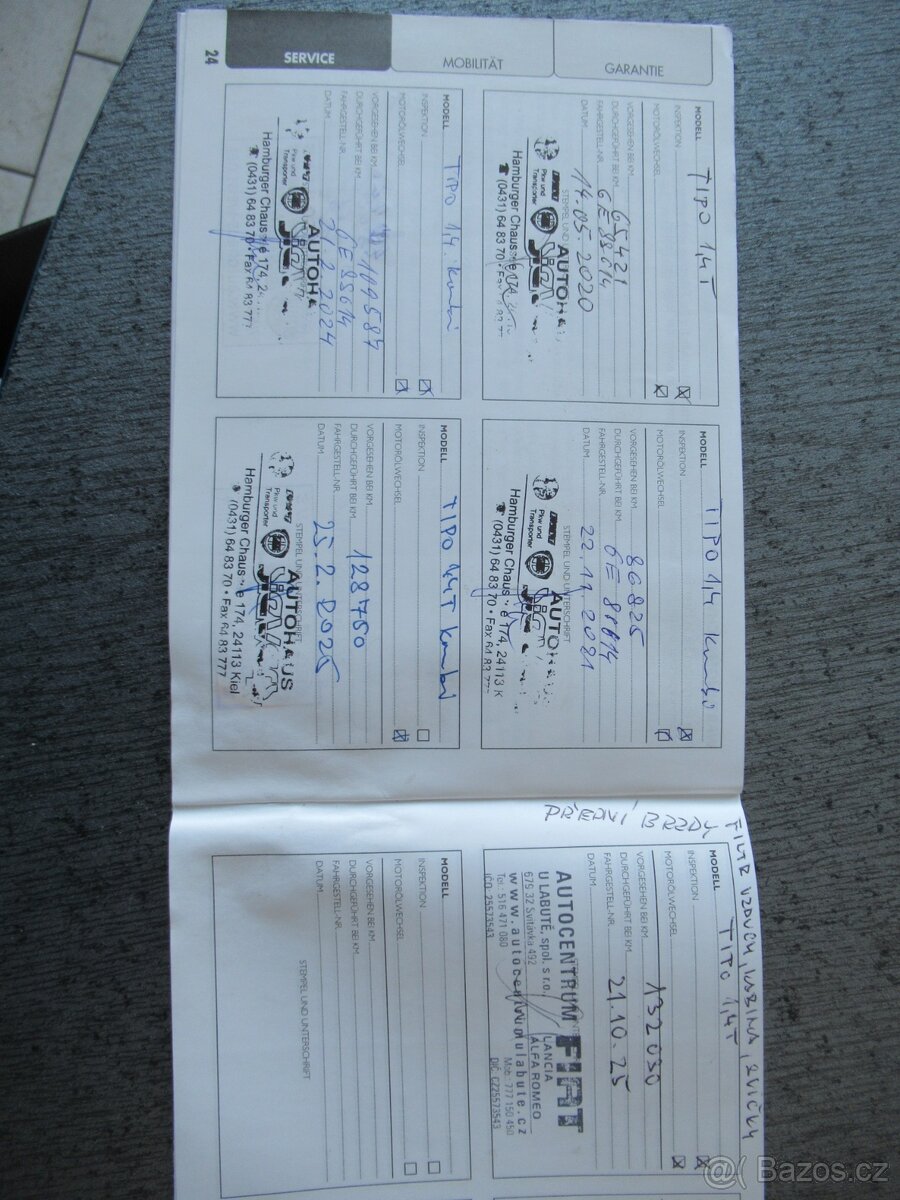 24
SERVICE
MOBILITÄT
GARANTIE
MODELL TIPO 1,4 T
INSPEKTION
MOTORÖLWECHSEL
VORGESEHEN BEI KM
DURCHGEFÜHRT BEI KM 65421
FAHRGESTELL-NR. 6E88614
DATUM 14.05.2020
STEMPEL UND
AUTOHA
Pkw und
Transporter
Hamburger Chaus
(0431) 64 83 70 • Fax
MODELL TIPO 1,4
INSPEKTION
MOTORÖLWECHSEL
VORGESEHEN BEI KM
DURCHGEFÜHRT BEI KM 86825
FAHRGESTELL-NR. 6E 88614
DATUM 22.11.2021
STEMPEL UND UNTERSCHRIFT
AUTOH
Pkw und
Transporter
Hamburger Chaus e 174, 24113 K
(0431) 64 83 70 • Fax 64 83 777
MODELL TIPO 1,4. Kombi
INSPEKTION
MOTORÖLWECHSEL
VORGESEHEN BEI KM
DURCHGEFÜHRT BEI KM
FAHRGESTELL-NR.
DATUM 2024
AUTOHA
Pkw und
Transporter
Hamburger Chaus e 174, 24
(0431) 64 83 70 • Fax 64 83 777
MODELL TIPO 1,4T Kombi
INSPEKTION
MOTORÖLWECHSEL
VORGESEHEN BEI KM
DURCHGEFÜHRT BEI KM 128750
FAHRGESTELL-NR.
DATUM 25.2.2025
STEMPEL UND UNTERSCHRIFT
AUTOHAUS
Pkw und
Transporter
Hamburger Chaus e 174, 24113 Kiel
(0431) 64 83 70 • Fax 64 83 777
FILTR VZDUCH, KABINA, SVÍČKY
PŘEDNÍ BRZDY
MODELL TIPO 1,4T
INSPEKTION
MOTORÖLWECHSEL
VORGESEHEN BEI KM 132030
DURCHGEFÜHRT BEI KM
FAHRGESTELL-NR. 21.10.25
DATUM
AUTOCENTRUM FIAT
U LABUTĚ, spol. s r.o. LANCIA
679 32 Svitávka 492 ALFA ROMEO
www.autocentrumulabute.cz
Tel.: 516 471 080 Mob.: 777 150 450
IČO: 25573543 DIČ: CZ25573543
MODELL
INSPEKTION
MOTORÖLWECHSEL
VORGESEHEN BEI KM
DURCHGEFÜHRT BEI KM
FAHRGESTELL-NR.
DATUM
STEMPEL UND UNTERSCHRIFT
Bazos.cz